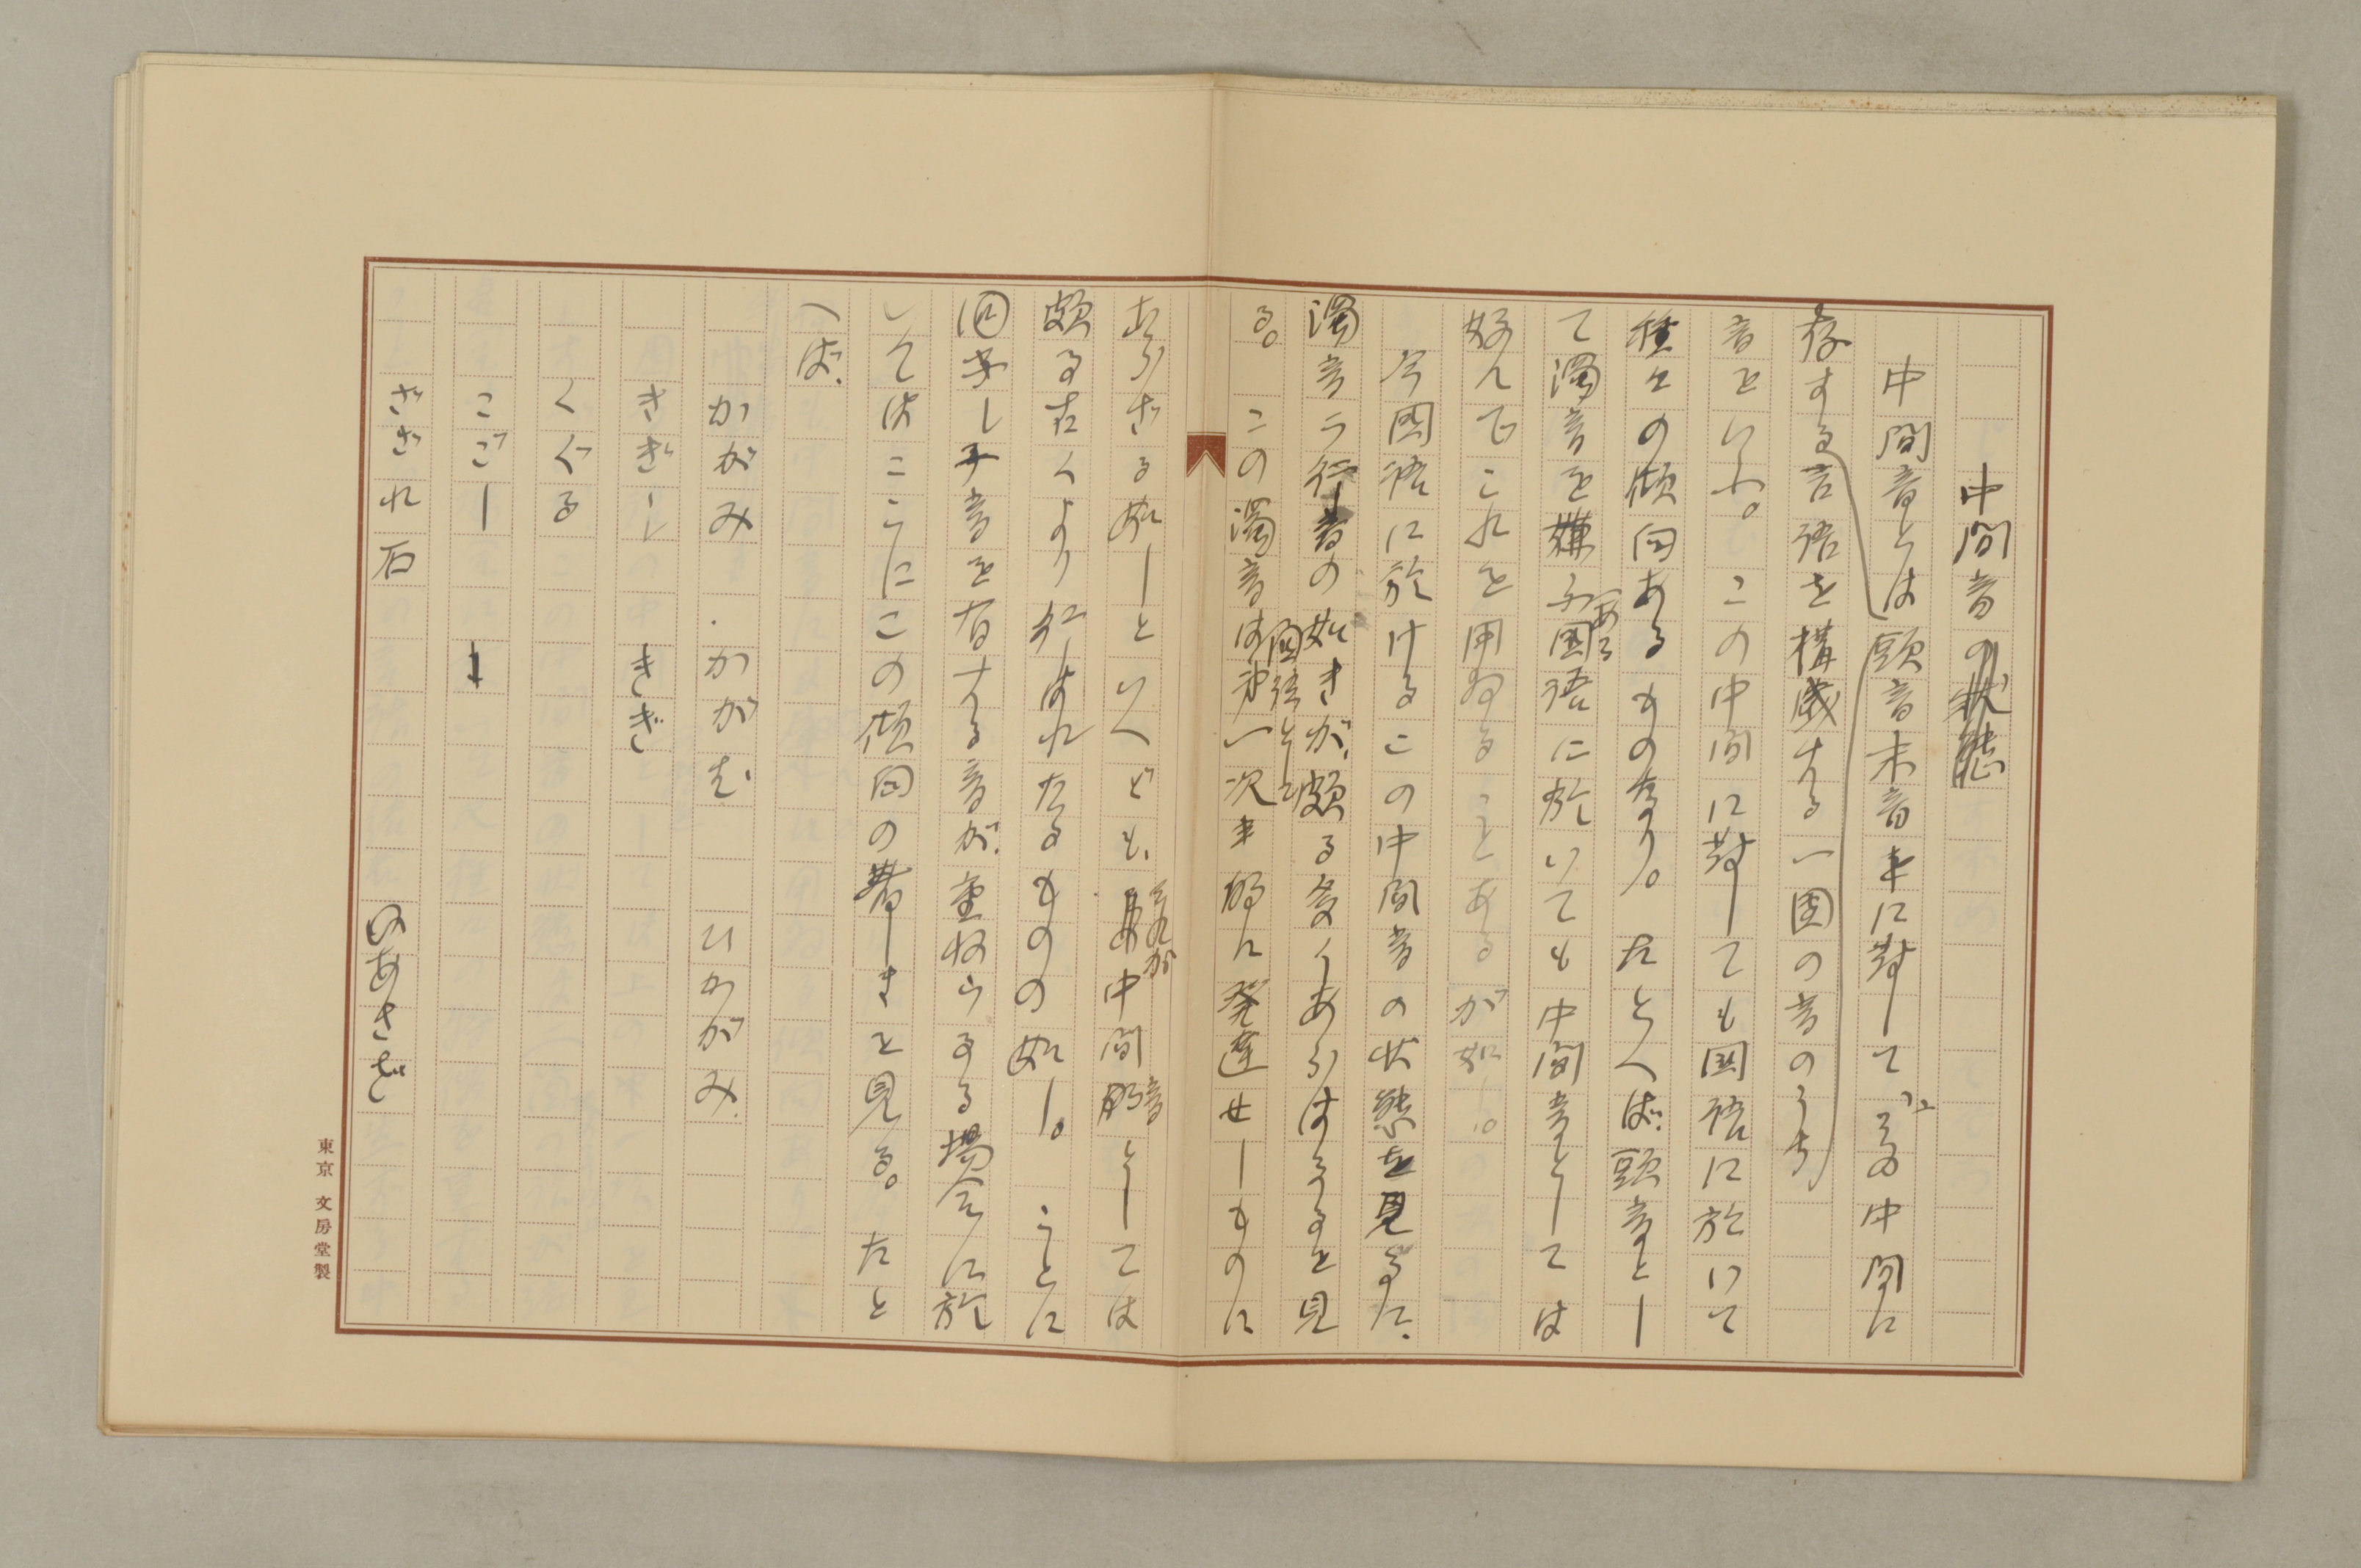 中間音の状態
中間音とは頭音末音に対して、その中間に
存する言語を構成する一団の音のうち
音をいふ。この中間に対しても国語に於いて
種々の傾向あるものなり。たとへば、頭音とし
て濁音を嫌ふある国語に於いても中間音としては
好んでこれを用ゐることあるが如し。
今国語に於けるこの中間音の状態を見るに、
濁音ラ行音の如きが、頗る多くあらはるるを見
る。この濁音は国語として第一次的に発達せしものに
あらざる如しといへども、それが中間音としては
頗る古くより行はれたるものの如し。ことに
同じ子音を有する音が、重ねらるる場合に於
いてはここにこの傾向の著しきを見る。たと
へば、
かがみ.かがむ ひかがみ.
きぎし きぎ
くぐる
こごし
さざれ石 いあさざ
東京 文房堂製